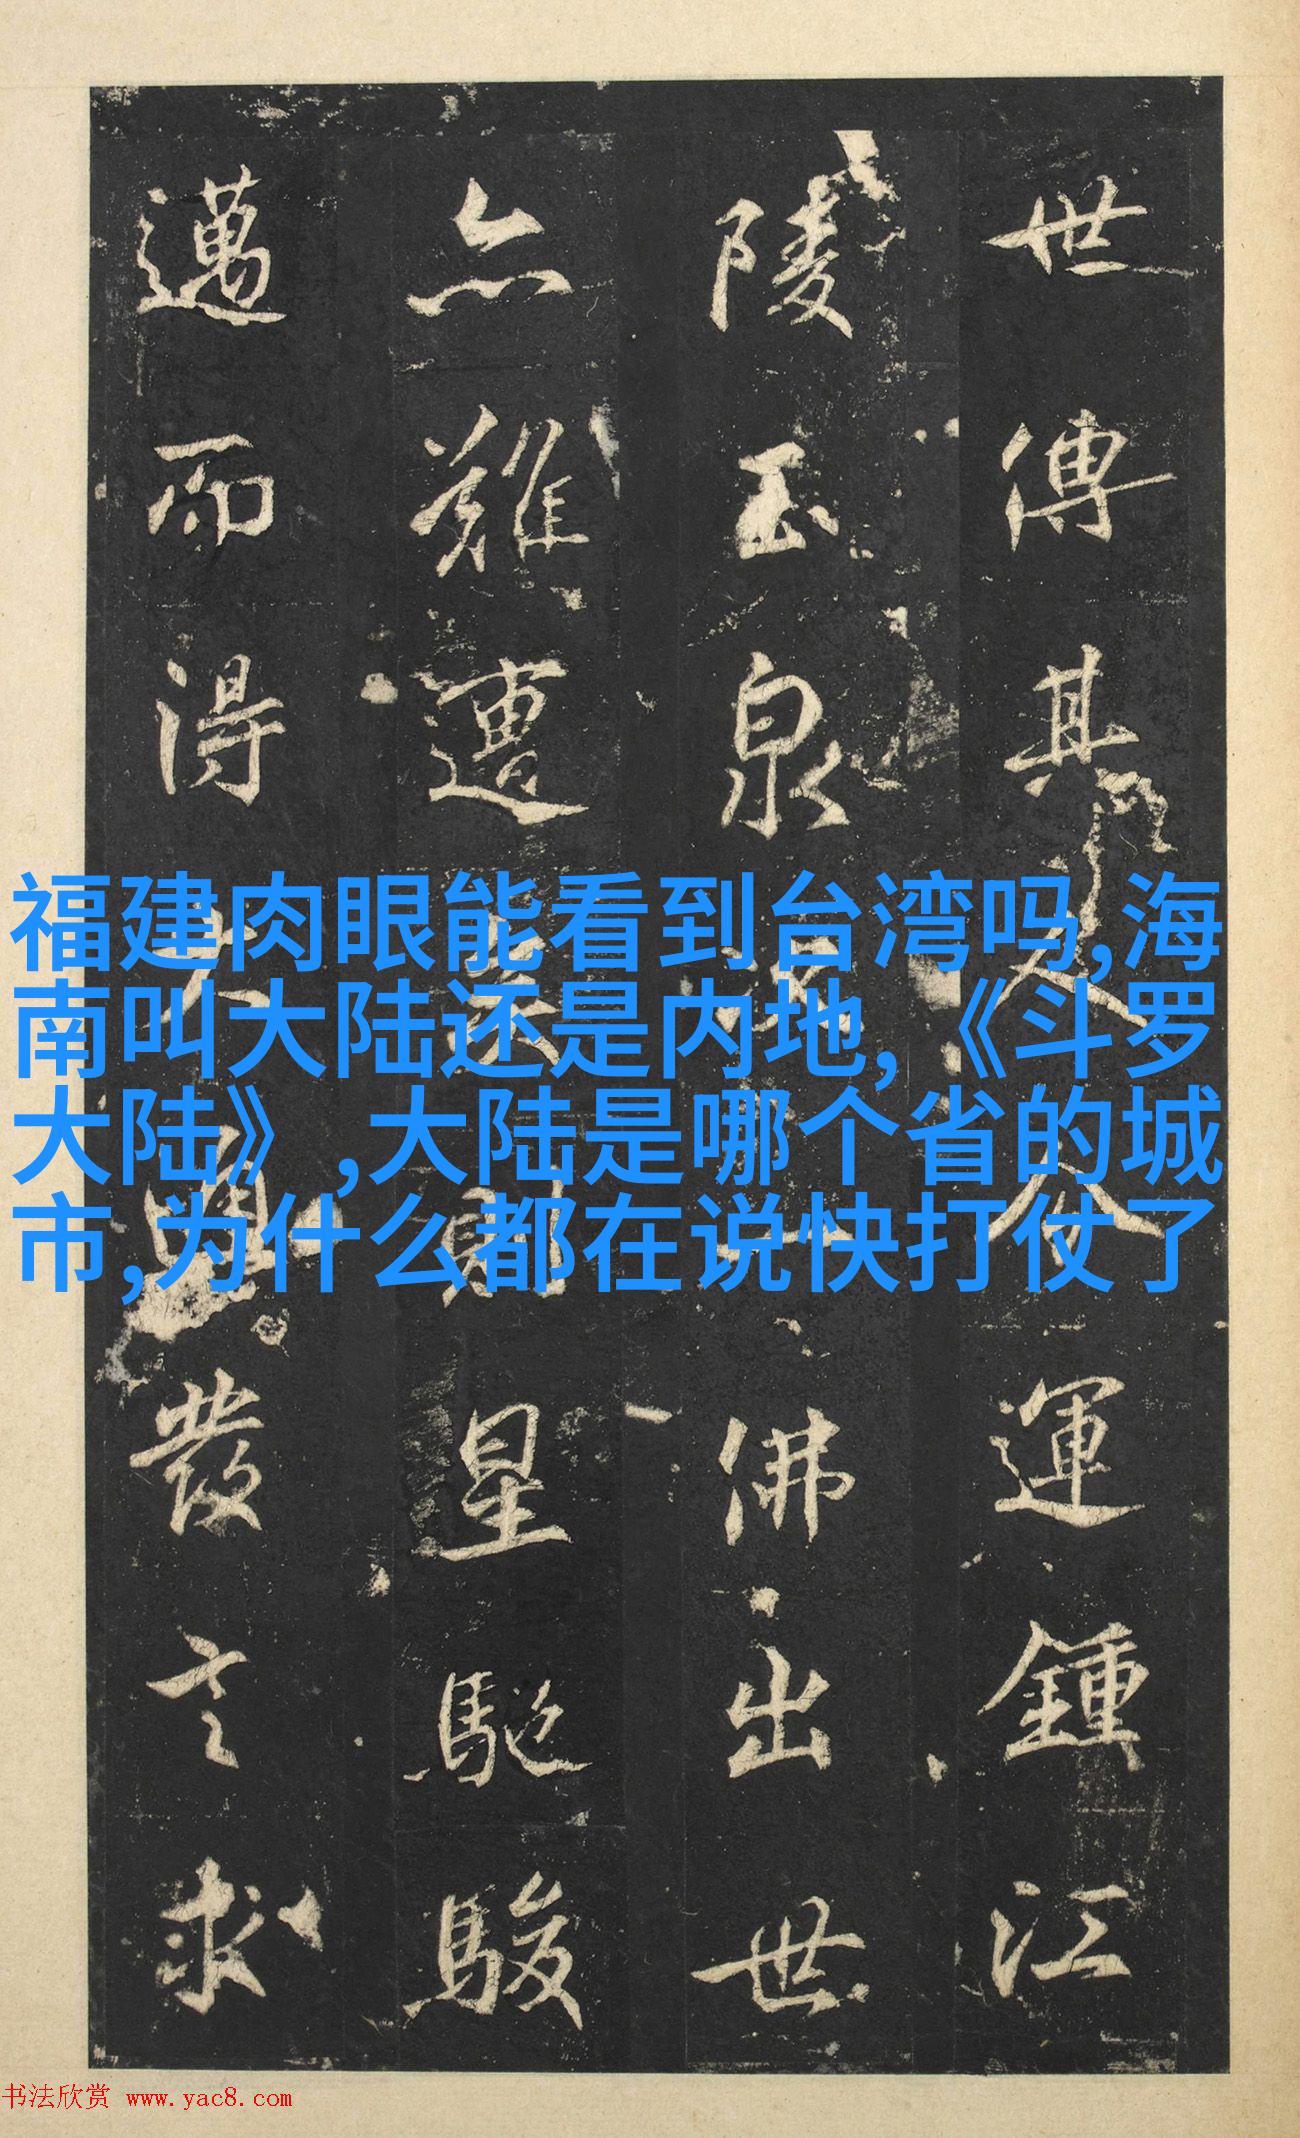 世傳其人今運鍾江
陵玉泉佛出世
亦難遭星馳駿
邁而得大興發之求
福建肉眼能看到台湾吗,海
南叫大陆还是内地,《斗罗
大陆》,大陆是哪个省的城
市,为什么都在说快打仗了
书法欣赏 www.yac8.com